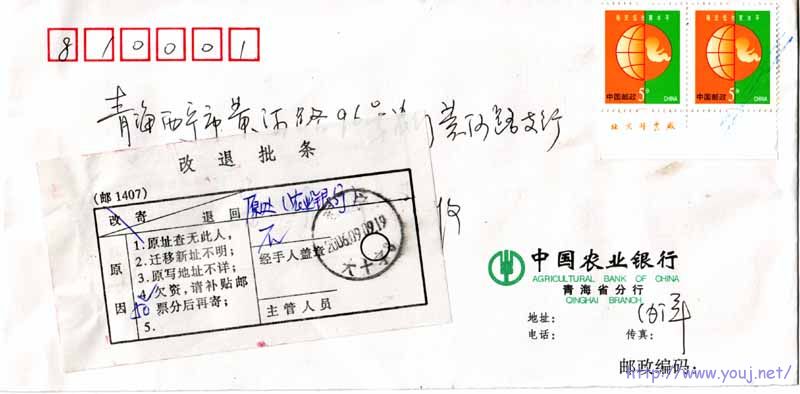 810001
中国邮政 5分 CHINA
中国邮政 5分 CHINA
北京邮票厂
青海西宁市黄河路 黄河路支行
收
改退批条
(邮1407)
改寄 退回 原处(农业银行)
原因
1.原址查无此人,
2.迁移新址不明;
3.原写地址不详;
4.欠资,请补贴邮
票分后再寄;
5.
经手人盖章
2006.09.09.19
主管人员
中国农业银行
AGRICULTURAL BANK OF CHINA
青海省分行
QINGHAI BRANCH
地址:
电话: 传真:
邮政编码:
http://www.youj.net/